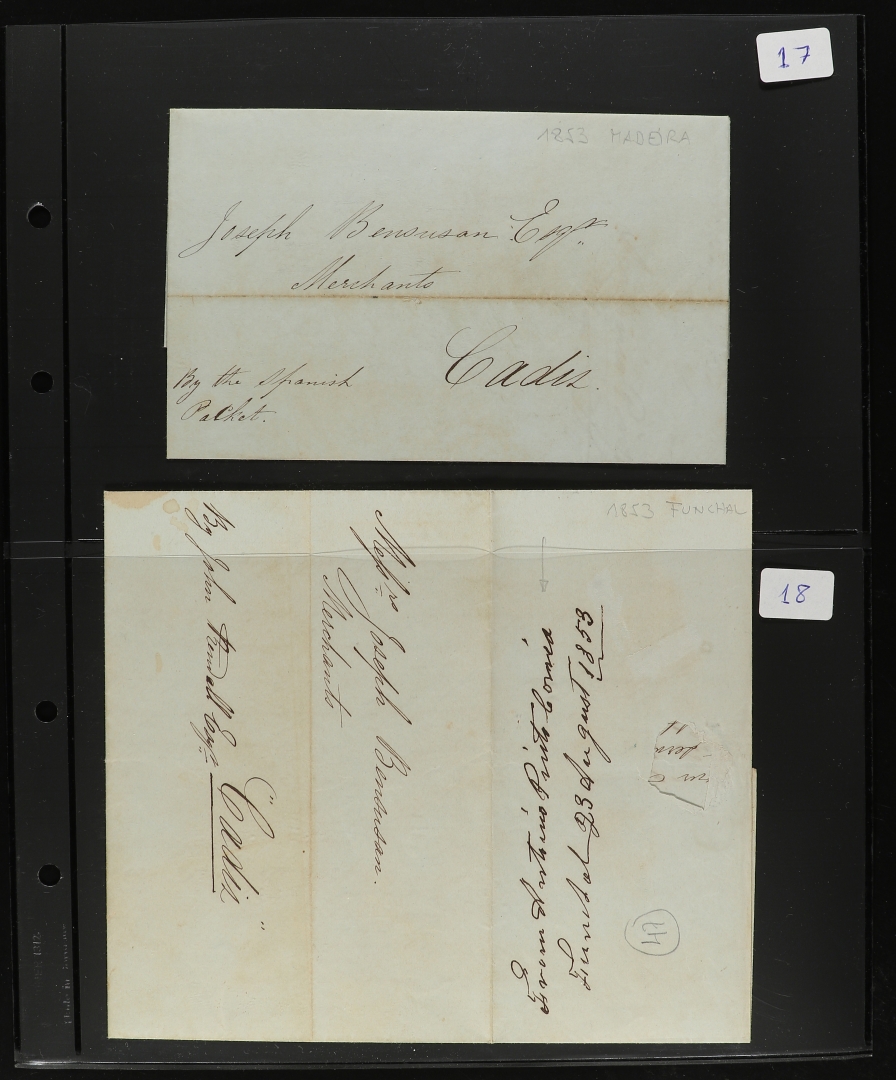 17
1853 MADEIRA
Joseph Bensusan Esqr
Merchants
Cadiz.
By the Spanish
Packet.
18
1853 FUNCHAL
Messrs Joseph Bensusan.
Merchants
"Cadiz"
By John Esqr.
From Antonio Pinto Correia
Funchal 23 August 1853